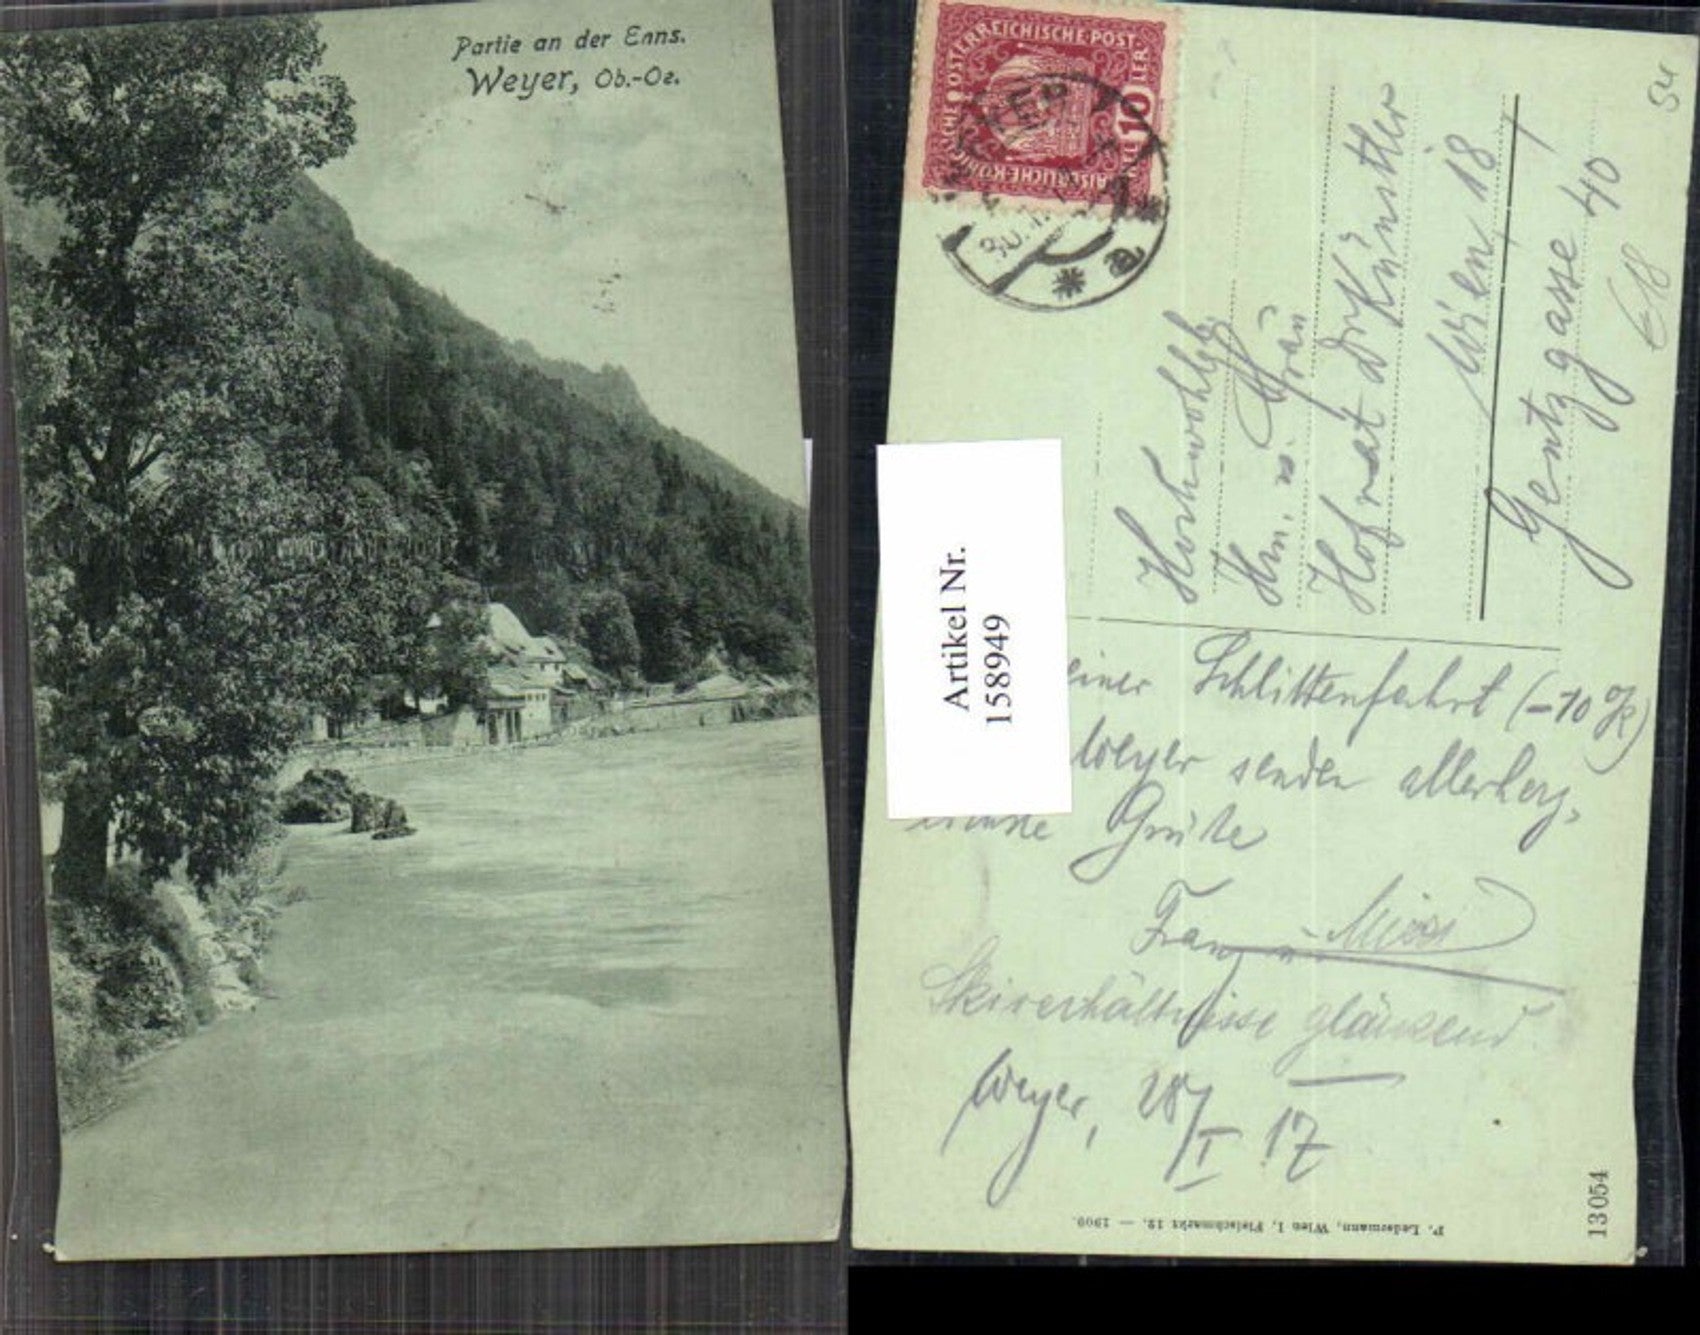 Partie an der Enns.
Weyer, Ob.-Oe.
KAISERLICHE KÖNIGLICHE ÖSTERREICHISCHE POST
10
WEYER
a
Artikel Nr.
158949
Hochwohlgb.
Hrn. u. Frau
Hofrat Dr Künstler
Wien, 18
Gentzgasse 40
einer Schlittenfahrt (-10°R)
Weyer senden allerherz-
Grüße
Franz u. Mizzi
Skiverhältnisse glänzend.
Weyer, 28/I 17
P. Ledermann, Wien I, Fleischmarkt 12. — 1909.
13054